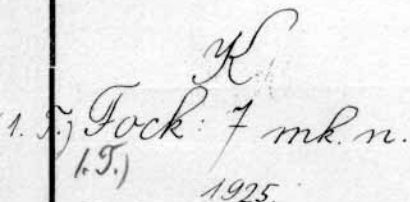 K
(1. T.) Fock: 7 mk. n.
1. T.)
1925.